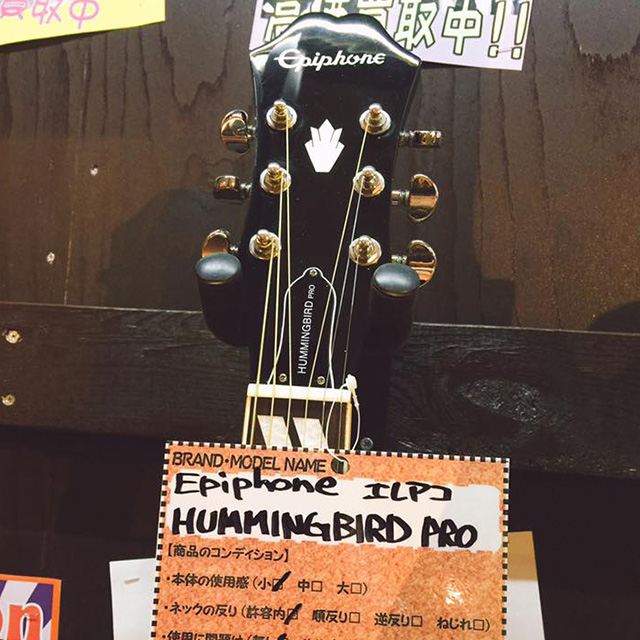 買取中
高価買取中!!
Epiphone
HUMMINGBIRD PRO
BRAND・MODEL NAME
Epiphone エレアコ
HUMMINGBIRD PRO
【商品のコンデイション】
・本体の使用感(小☑ 中□ 大□)
・ネックの反り(許容内☑ 順反り□ 逆反り□ ねじれ□)
・使用に問題は
on